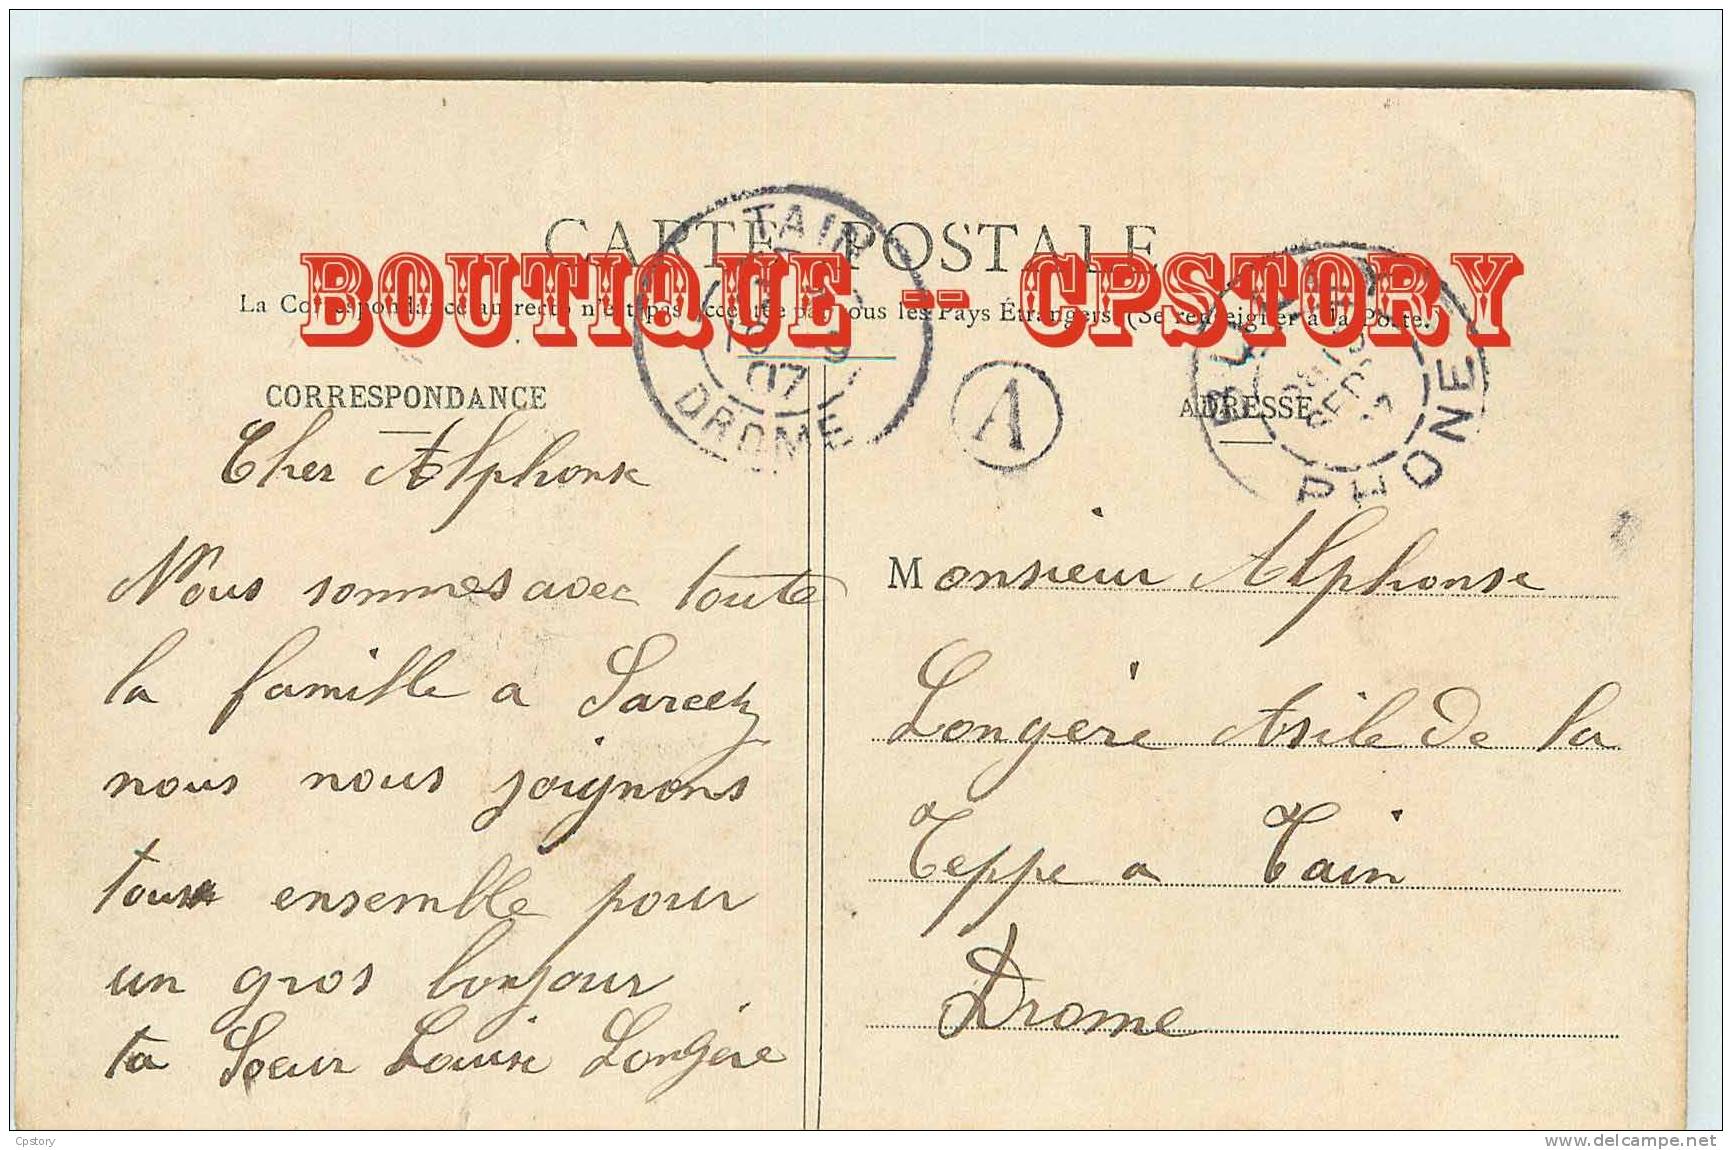 CARTE POSTALE
BOUTIQUE -- CPSTORY
La Correspondance au recto n'est pas acceptée par tous les Pays Étrangers. (Se renseigner à la Poste.)
TAIN
07
DROME
A
CORRESPONDANCE
Cher Alphonse
Nous sommes avec toute
la famille a Sarcey
nous nous joignons
tous ensemble pour
un gros bonjour
ta Soeur Louise Longère
ADRESSE
Monsieur Alphonse
Longère Asile de la
Teppe a Tain
Drome
Cpstory
www.delcampe.net